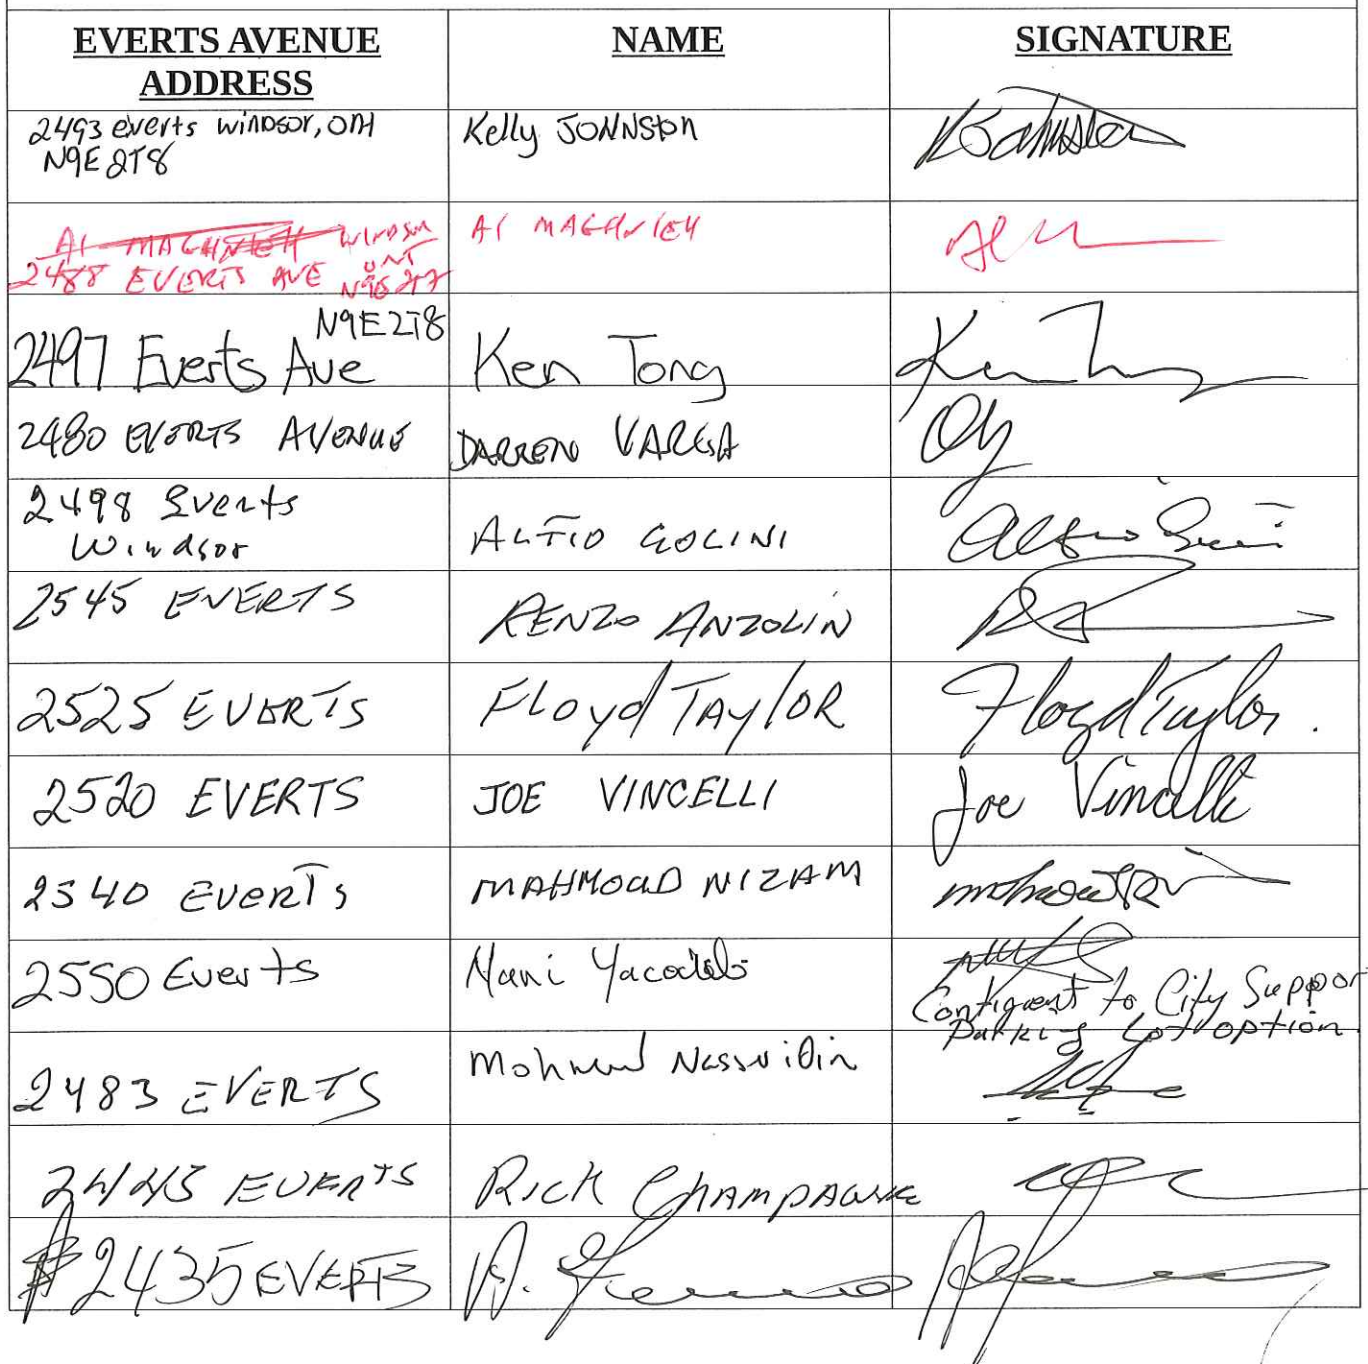 EVERTS AVENUE
ADDRESS
NAME
SIGNATURE
2493 everts windsor, ont
N9E 2T8
Kelly JOHNSTON
Al MAGHNIEH WINDSOR
ONT
2488 EVERTS AVE N9E 2T7
Al MAGHNIEH
N9E2T8
2497 Everts Ave
Ken Tong
2480 EVERTS AVENUE
DARREN VARGA
2498 Everts
Windsor
ALFIO GOLINI
Alfio Golini
2545 EVERTS
RENZO ANZOLIN
2525 EVERTS
FLoyd TAylOR
Floyd Taylor.
2520 EVERTS
JOE VINCELLI
Joe Vincelli
2540 EVERTS
MAHMOUD NIZAM
2550 Everts
Contigent to City Support
Parking Lot option
2483 EVERTS
2445 EVERTS
RICK CHAMPAGNE
2435 EVERTS